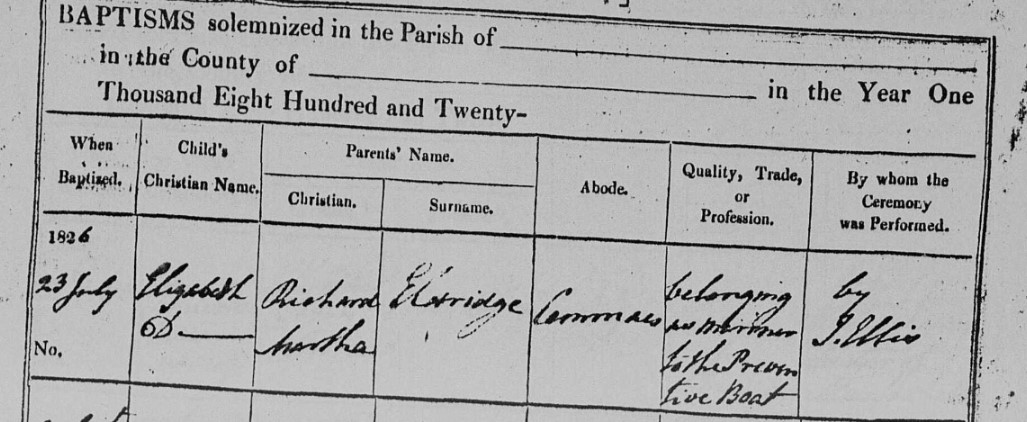 BAPTISMS solemnized in the Parish of
in the County of in the Year One
Thousand Eight Hundred and Twenty-
When Baptized.
Child's Christian Name.
Parents' Name.
Christian.
Surname.
Abode.
Quality, Trade, or Profession.
By whom the Ceremony was Performed.
1826
23 July
No.
Elizabeth
Richard
Martha
Eldridge
belonging
as Mariner
to the Preven
tive Boat
by
J. Ellis